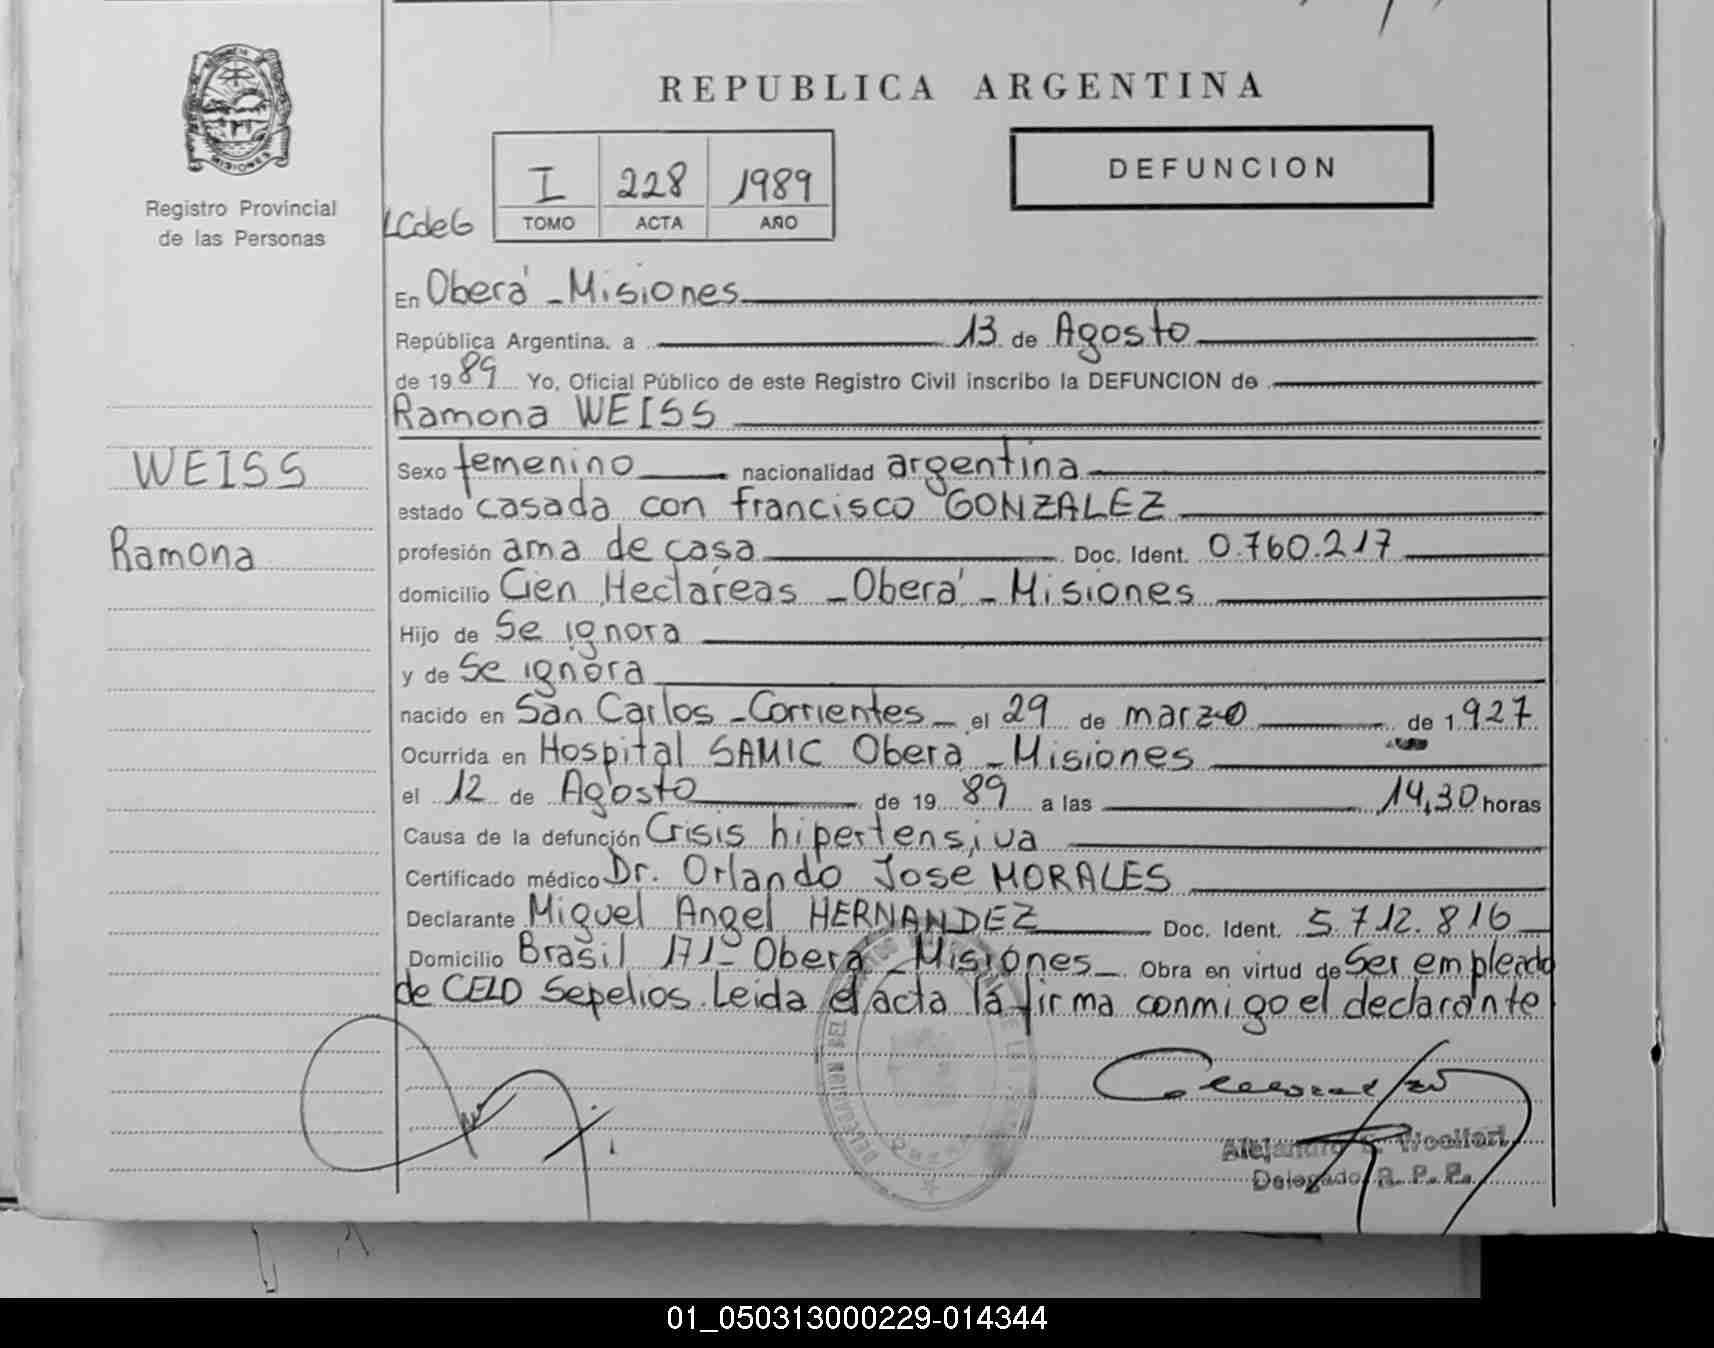 REPUBLICA ARGENTINA
DEFUNCION
MISIONES
Registro Provincial
de las Personas
I 228 1989
TOMO ACTA AÑO
LCdeG
En Oberá - Misiones
República Argentina, a 13 de Agosto
de 1989 Yo, Oficial Público de este Registro Civil inscribo la DEFUNCION de
Ramona WEISS
WEISS
Ramona
Sexo femenino nacionalidad argentina
estado casada con francisco GONZALEZ
profesión ama de casa Doc. Ident. 0.760.217
domicilio Cien Hectáreas - Oberá - Misiones
Hijo de Se ignora
y de Se ignora
nacido en San Carlos - Corrientes - el 29 de marzo de 1.927
Ocurrida en Hospital SAMIC Oberá - Misiones
el 12 de Agosto de 1989 a las 14,30 horas
Causa de la defunción Crisis hipertensiva
Certificado médico Dr. Orlando Jose MORALES
Declarante Miguel Angel HERNANDEZ Doc. Ident. 5.712.816
Domicilio Brasil 171- Oberá - Misiones - Obra en virtud de Ser empleado
de CELO Sepelios. Leida el acta la firma conmigo el declarante
Delegado R. P. P.
01_050313000229-014344